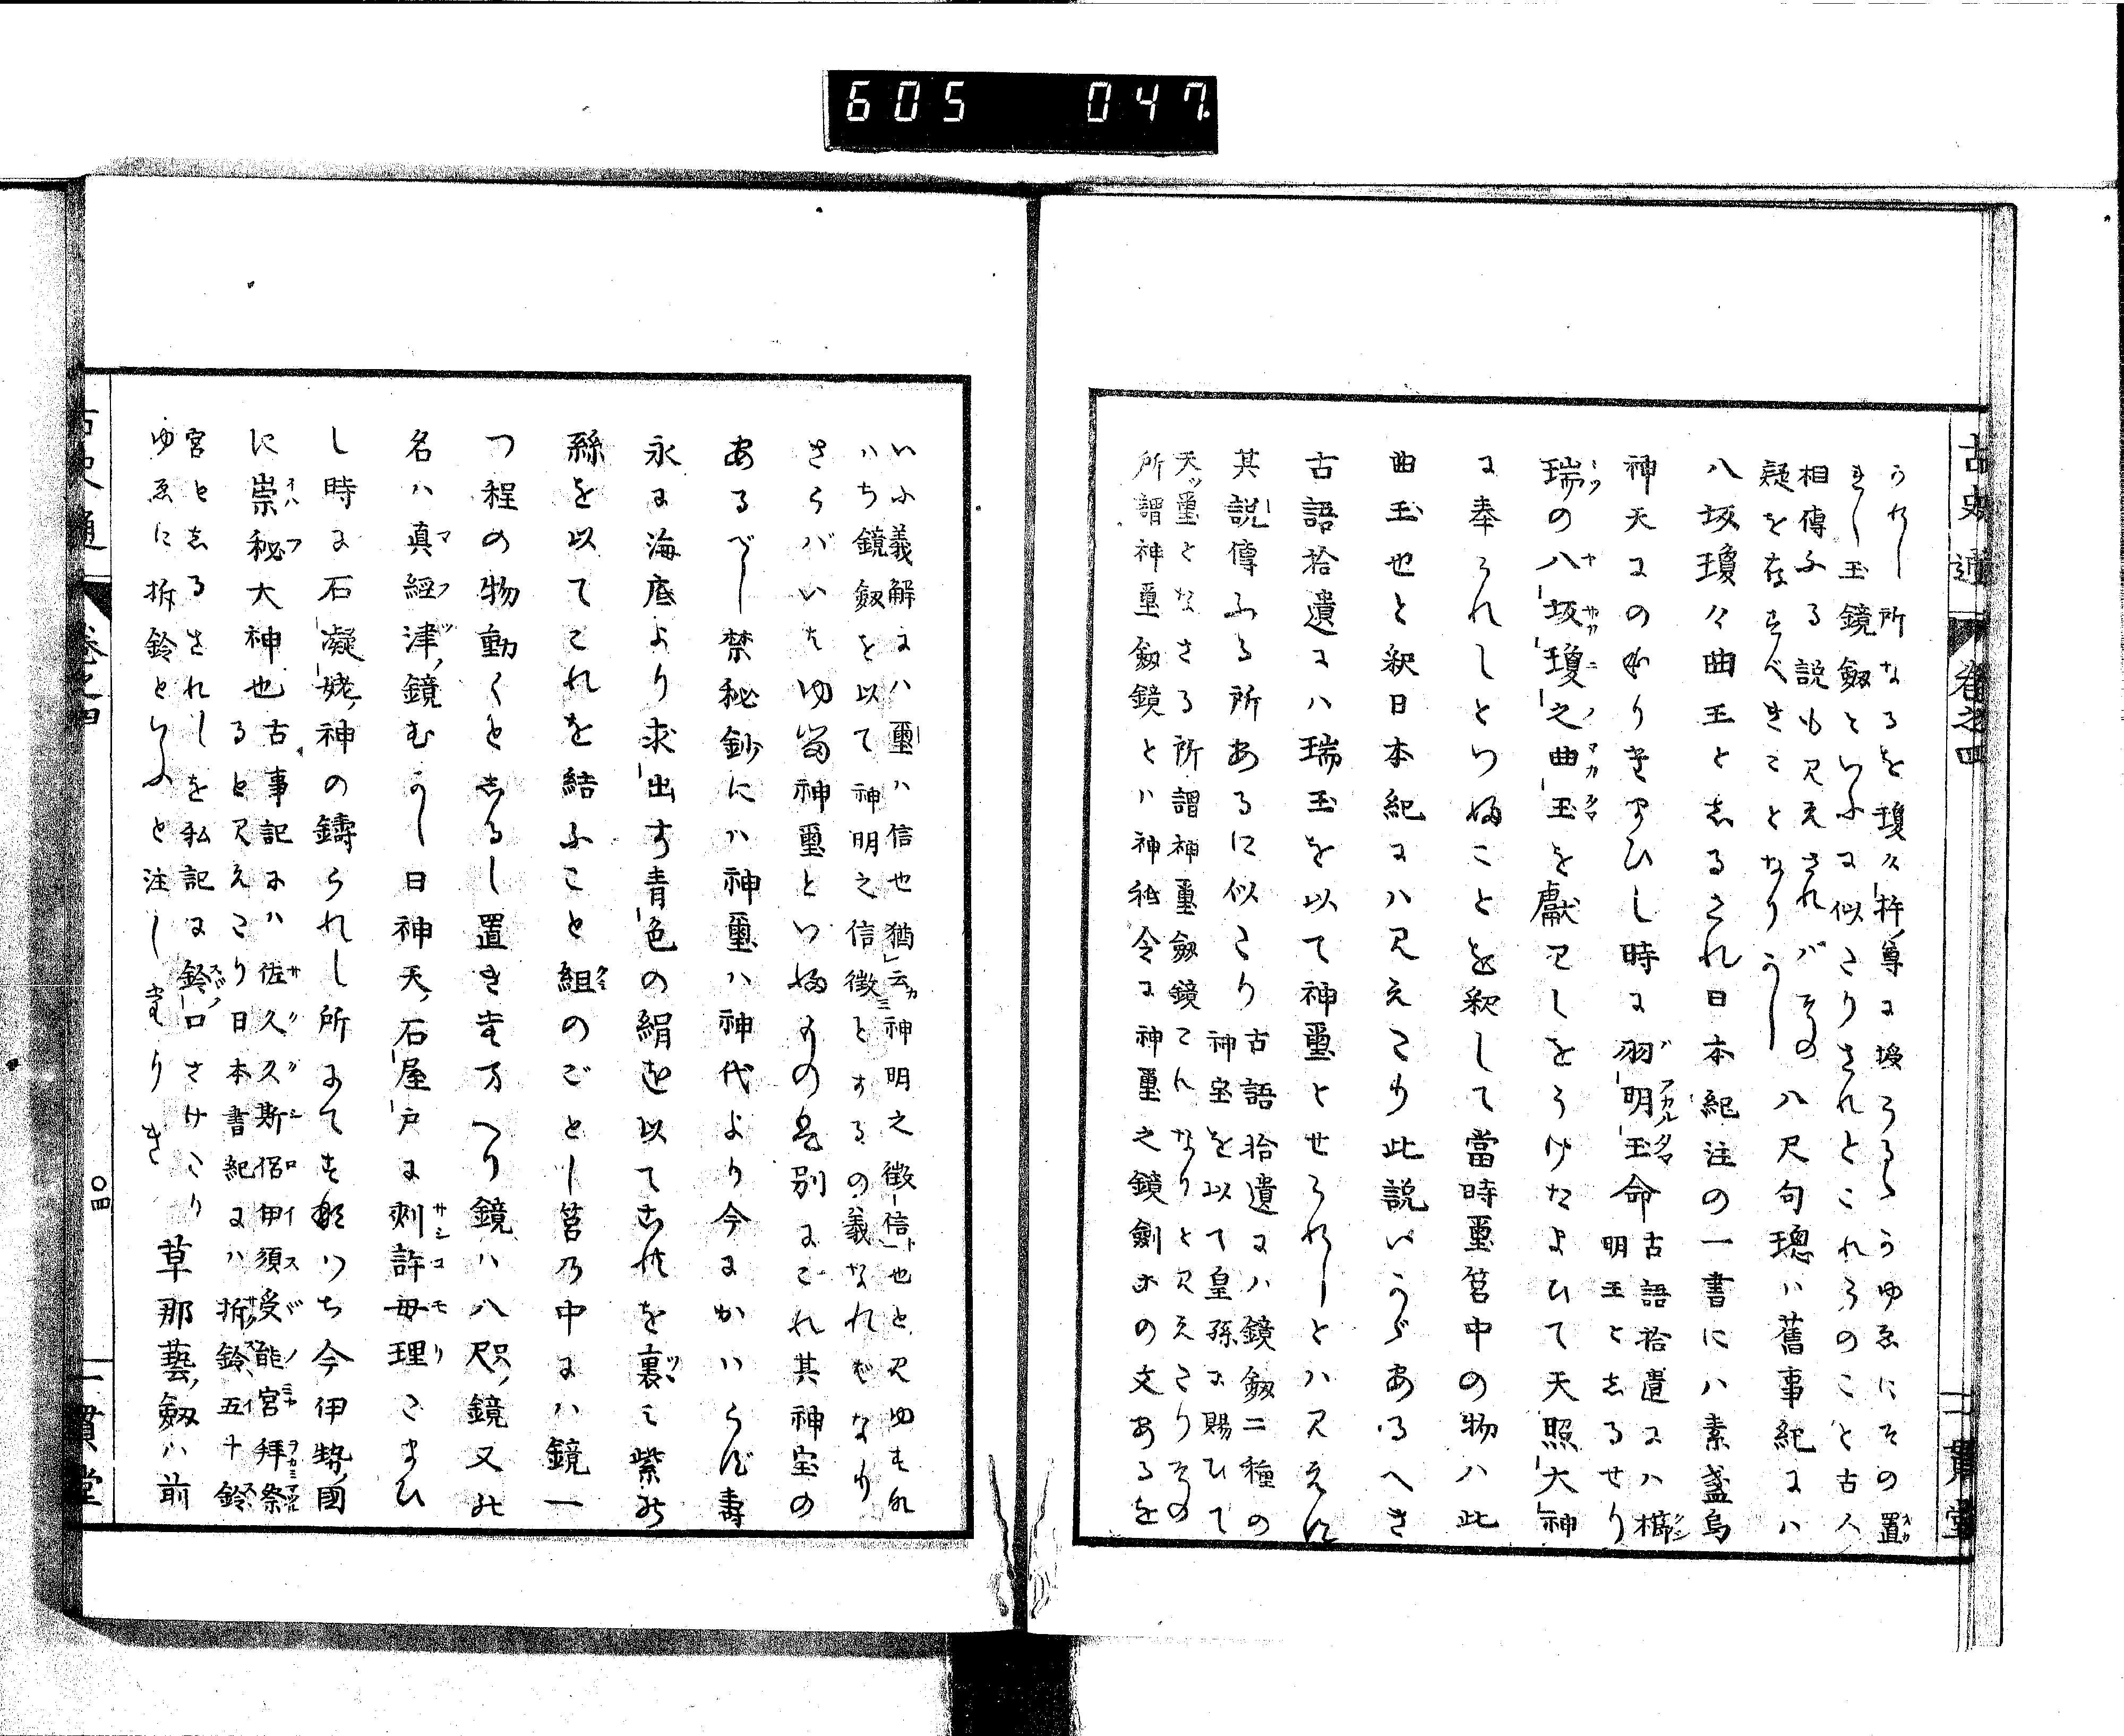 605 047
古史通 巻之四 一貫堂
られし所なるを瓊々杵尊に授らるゝうゆゑにその置
きし玉鏡劔といふに似たりされとこれらのこと古人
相傳ふる説も見えされバその
疑を存すべきことなるべし 八尺句璁ハ舊事紀にハ
八坂瓊々曲玉としるされ日本紀注の一書にハ素盞烏
神天にのぼりき給ひし時に羽明玉命 古語拾遺にハ櫛
明玉としるせり
瑞の八坂瓊之曲玉を獻りしをうけたまひて天照大神
に奉られしといふことを釈して當時璽筥中の物ハ此
曲玉也と釈日本紀にハ見えたり此説いうゞあるへき
古語拾遺にハ瑞玉を以て神璽とせられしとハ見えす
其説傳ふる所あるに似たり 古語拾遺にハ鏡劔二種の
神宝を以て皇孫に賜ひて
天璽となさる所謂神璽劔鏡これなりと見えたりその
所謂神璽劔鏡とハ神祇令に神璽之鏡劍等の文あるを
いふ義解にハ璽ハ信也猶云神明之徴信也と見ゆすな
ハち鏡劔を以て神明之信徴とするの義なれバなり
さらバいはゆる神璽といふものハ別にこれ其神宝の
あるべし禁秘鈔にハ神璽ハ神代より今にかハらず壽
永に海底より求出す青色の絹を以てこれを裏ミ紫の
絲を以てこれを結ふこと組のごとし筥乃中にハ鏡一
つ程の物動くとしるし置き給へり鏡ハ八尺鏡又の
名ハ真經津鏡むかし日神天石屋戸に刺許毋理たまひ
し時に石凝姥神の鑄られし所にてすなハち今伊勢國
に崇秘大神也 古事記にハ佐久久斯侶伊須受能宮拜祭
ると見えたり日本書紀にハ拆鈴五十鈴
宮としるされしを私記に鈴口さけたり
ゆゑに拆鈴といふと注しまりき 草那藝劔ハ前
古史通 巻之四 〇四 一貫堂